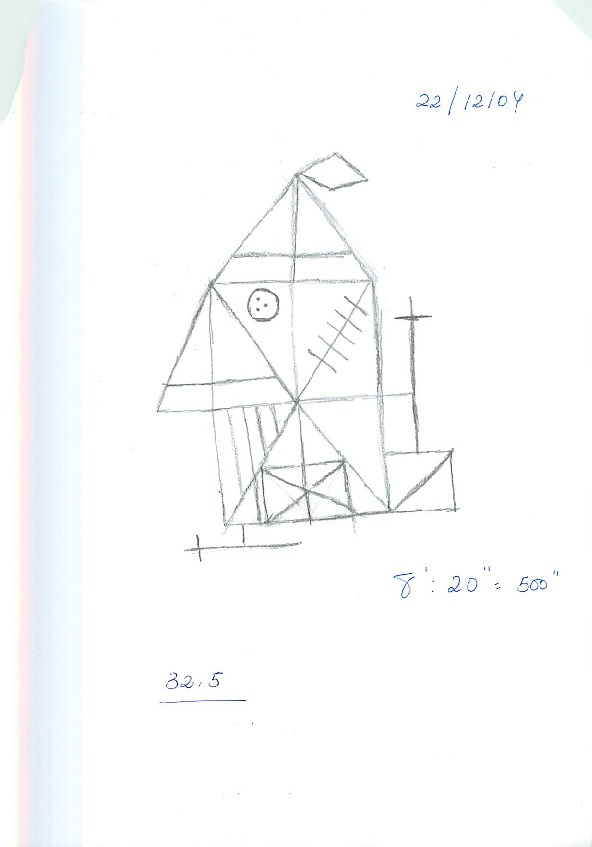 22/12/04
8': 20" = 500"
32.5